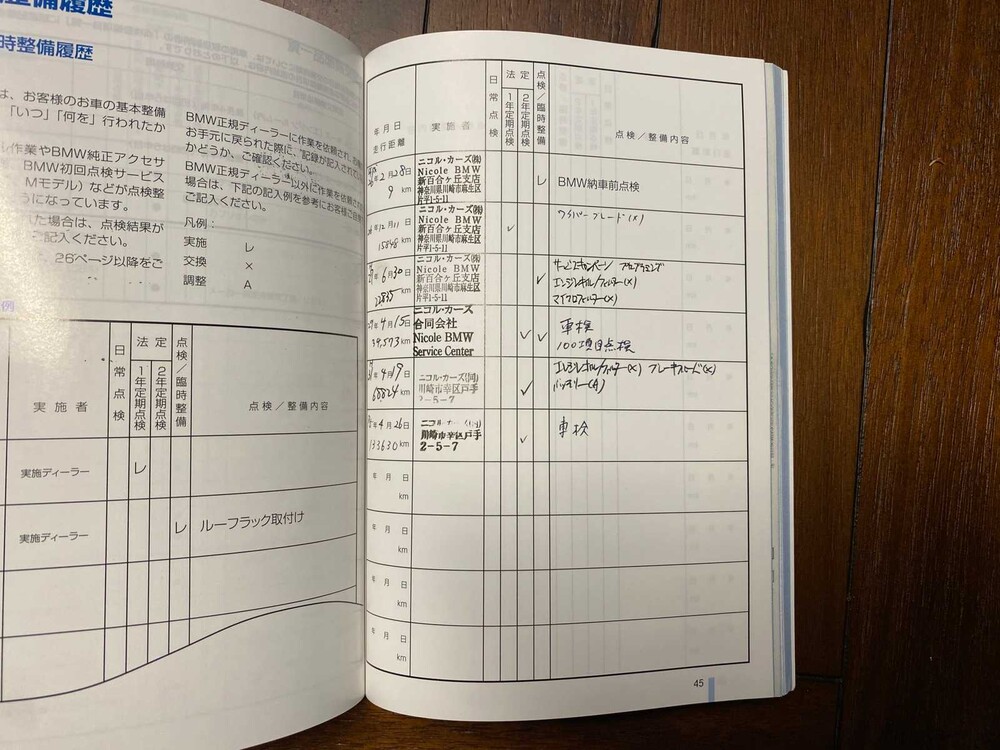 整備履歴
時整備履歴
は、お客様のお車の基本整備
「いつ」「何を」行われたか
ル作業やBMW純正アクセサ
BMW初回点検サービス
Mモデル）などが点検整
うになっています。
た場合は、点検結果が
ご記入ください。
26ページ以降をご
BMW正規ディーラーに作業を依頼され、お車
お手元に戻られた際に、記録が記入されて
かどうか、ご確認ください。
BMW正規ディーラー以外に作業を依頼
場合は、下記の記入例を参考にお客様ご自
ご記入ください。
凡例：
実施 レ
交換 ×
調整 A
例
実施者
日常点検
法定
1年定期点検
2年定期点検
点検／臨時整備
点検／整備内容
実施ディーラー レ
実施ディーラー レ ルーフラック取付け
年月日
走行距離
実施者
日常点検
法定
1年定期点検
2年定期点検
点検／臨時整備
点検／整備内容
年2月28日
9 km
ニコル・カーズ㈱
Nicole BMW
新百合ヶ丘支店
神奈川県川崎市麻生区
片平1-5-11
レ
BMW納車前点検
年12月11日
15848 km
ニコル・カーズ㈱
Nicole BMW
新百合ヶ丘支店
神奈川県川崎市麻生区
片平1-5-11
✓
ワイパーブレード(×)
年6月30日
22835 km
ニコル・カーズ㈱
Nicole BMW
新百合ヶ丘支店
神奈川県川崎市麻生区
片平1-5-11
✓
サービスキャンペーン プログラミング
エンジンオイル/フィルター(×)
マイクロフィルター(×)
年4月15日
39,573 km
ニコル・カーズ
合同会社
Nicole BMW
Service Center
✓ ✓
車検
100項目点検
年4月19日
68824 km
ニコル・カーズ(同)
川崎市幸区戸手
2-5-7
✓
エンジンオイル/フィルター(×) ブレーキフルード(×)
バッテリー(A)
年4月26日
133630 km
川崎市幸区戸手
2-5-7
✓
車検
年 月 日
km
年 月 日
km
年 月 日
km
年 月 日
km
45